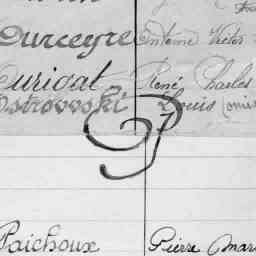 Durceyre Antoine Victor
Durigat René Charles
Ostrovoski Louis
P
Paichoux Pierre Mari